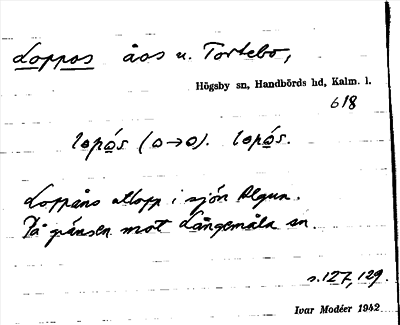 Loppos åos u. Tortebo,
Högsby sn, Handbörds hd, Kalm. l.
618
lopós (o→o). lopós.
Loppåns utlopp i sjön Algun.
På gränsen mot Långemåla sn.
s.127, 129.
Ivar Modéer 1942